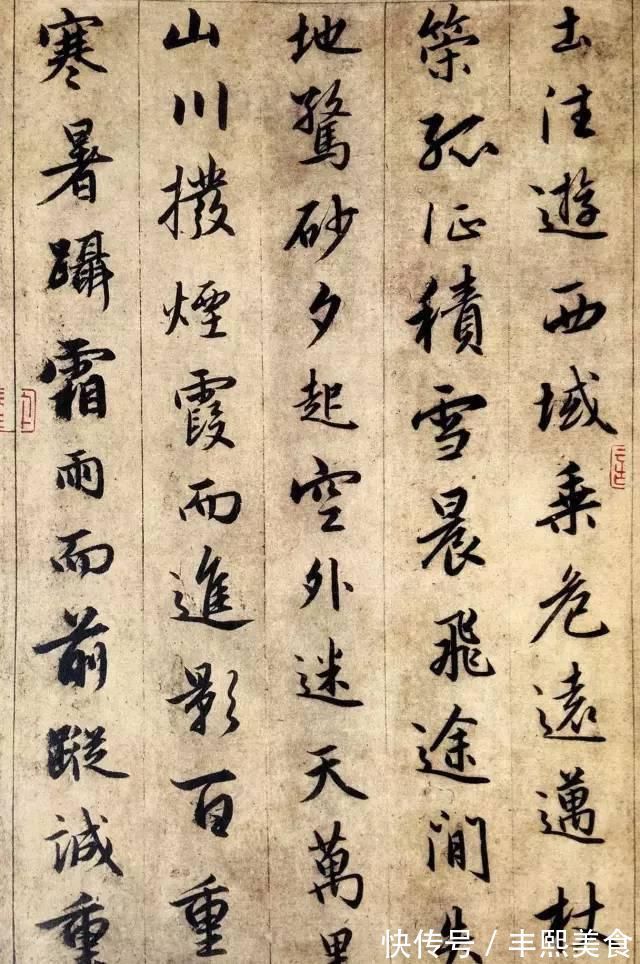 土往遊西域乘危遠邁杖
策孤征積雪晨飛途間失
地驚砂夕起空外迷天萬里
山川撥煙霞而進影百重
寒暑躡霜雨而前蹤誠重
快传号 / 丰熙美食